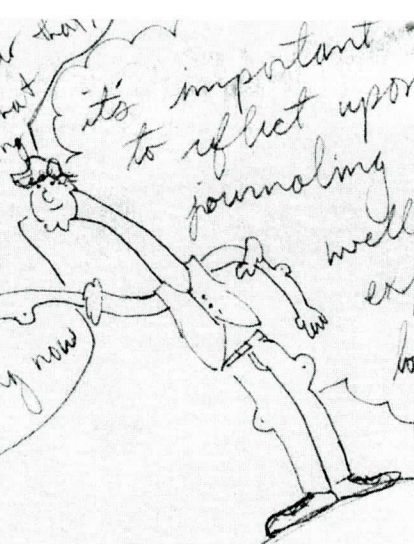 that,
it's important
to reflect upon
journaling
well
ex
now